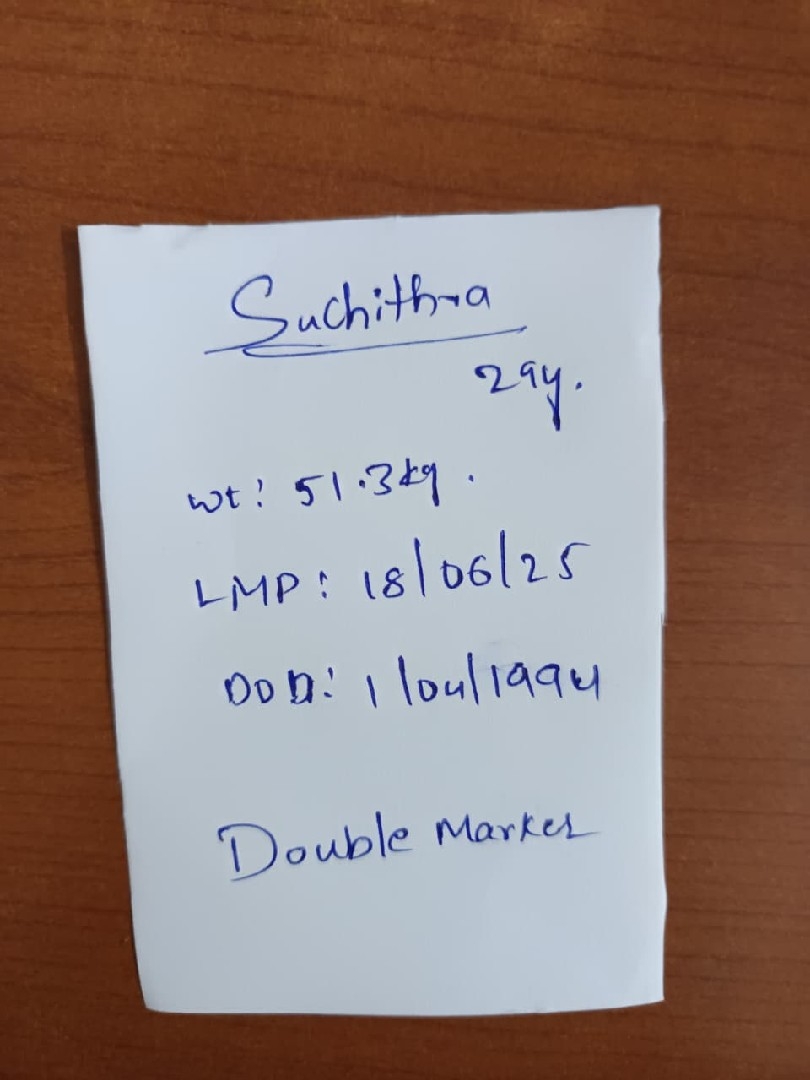 Suchithra
29y.
Wt: 51.3kg.
LMP: 18/06/25
DOB: 1/04/1994
Double Marker